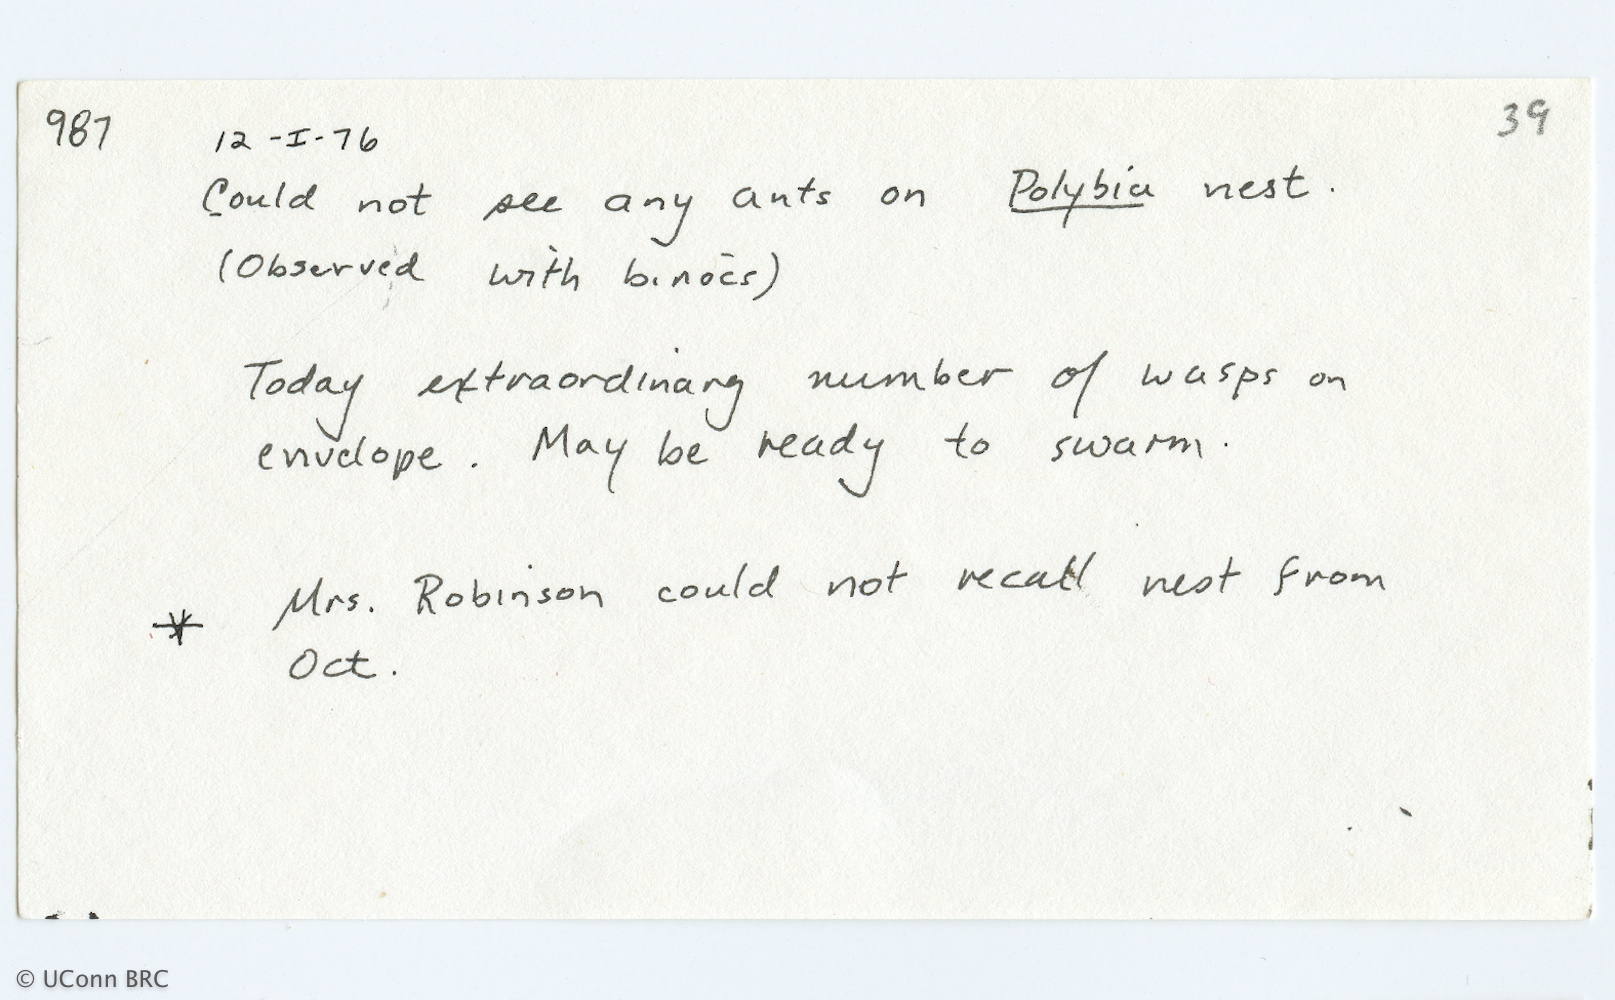 987 12-I-76 39
Could not see any ants on Polybia nest.
(Observed with binocs)
Today extraordinary number of wasps on
envelope. May be ready to swarm.
Mrs. Robinson could not recall nest from
* Oct.
© UConn BRC